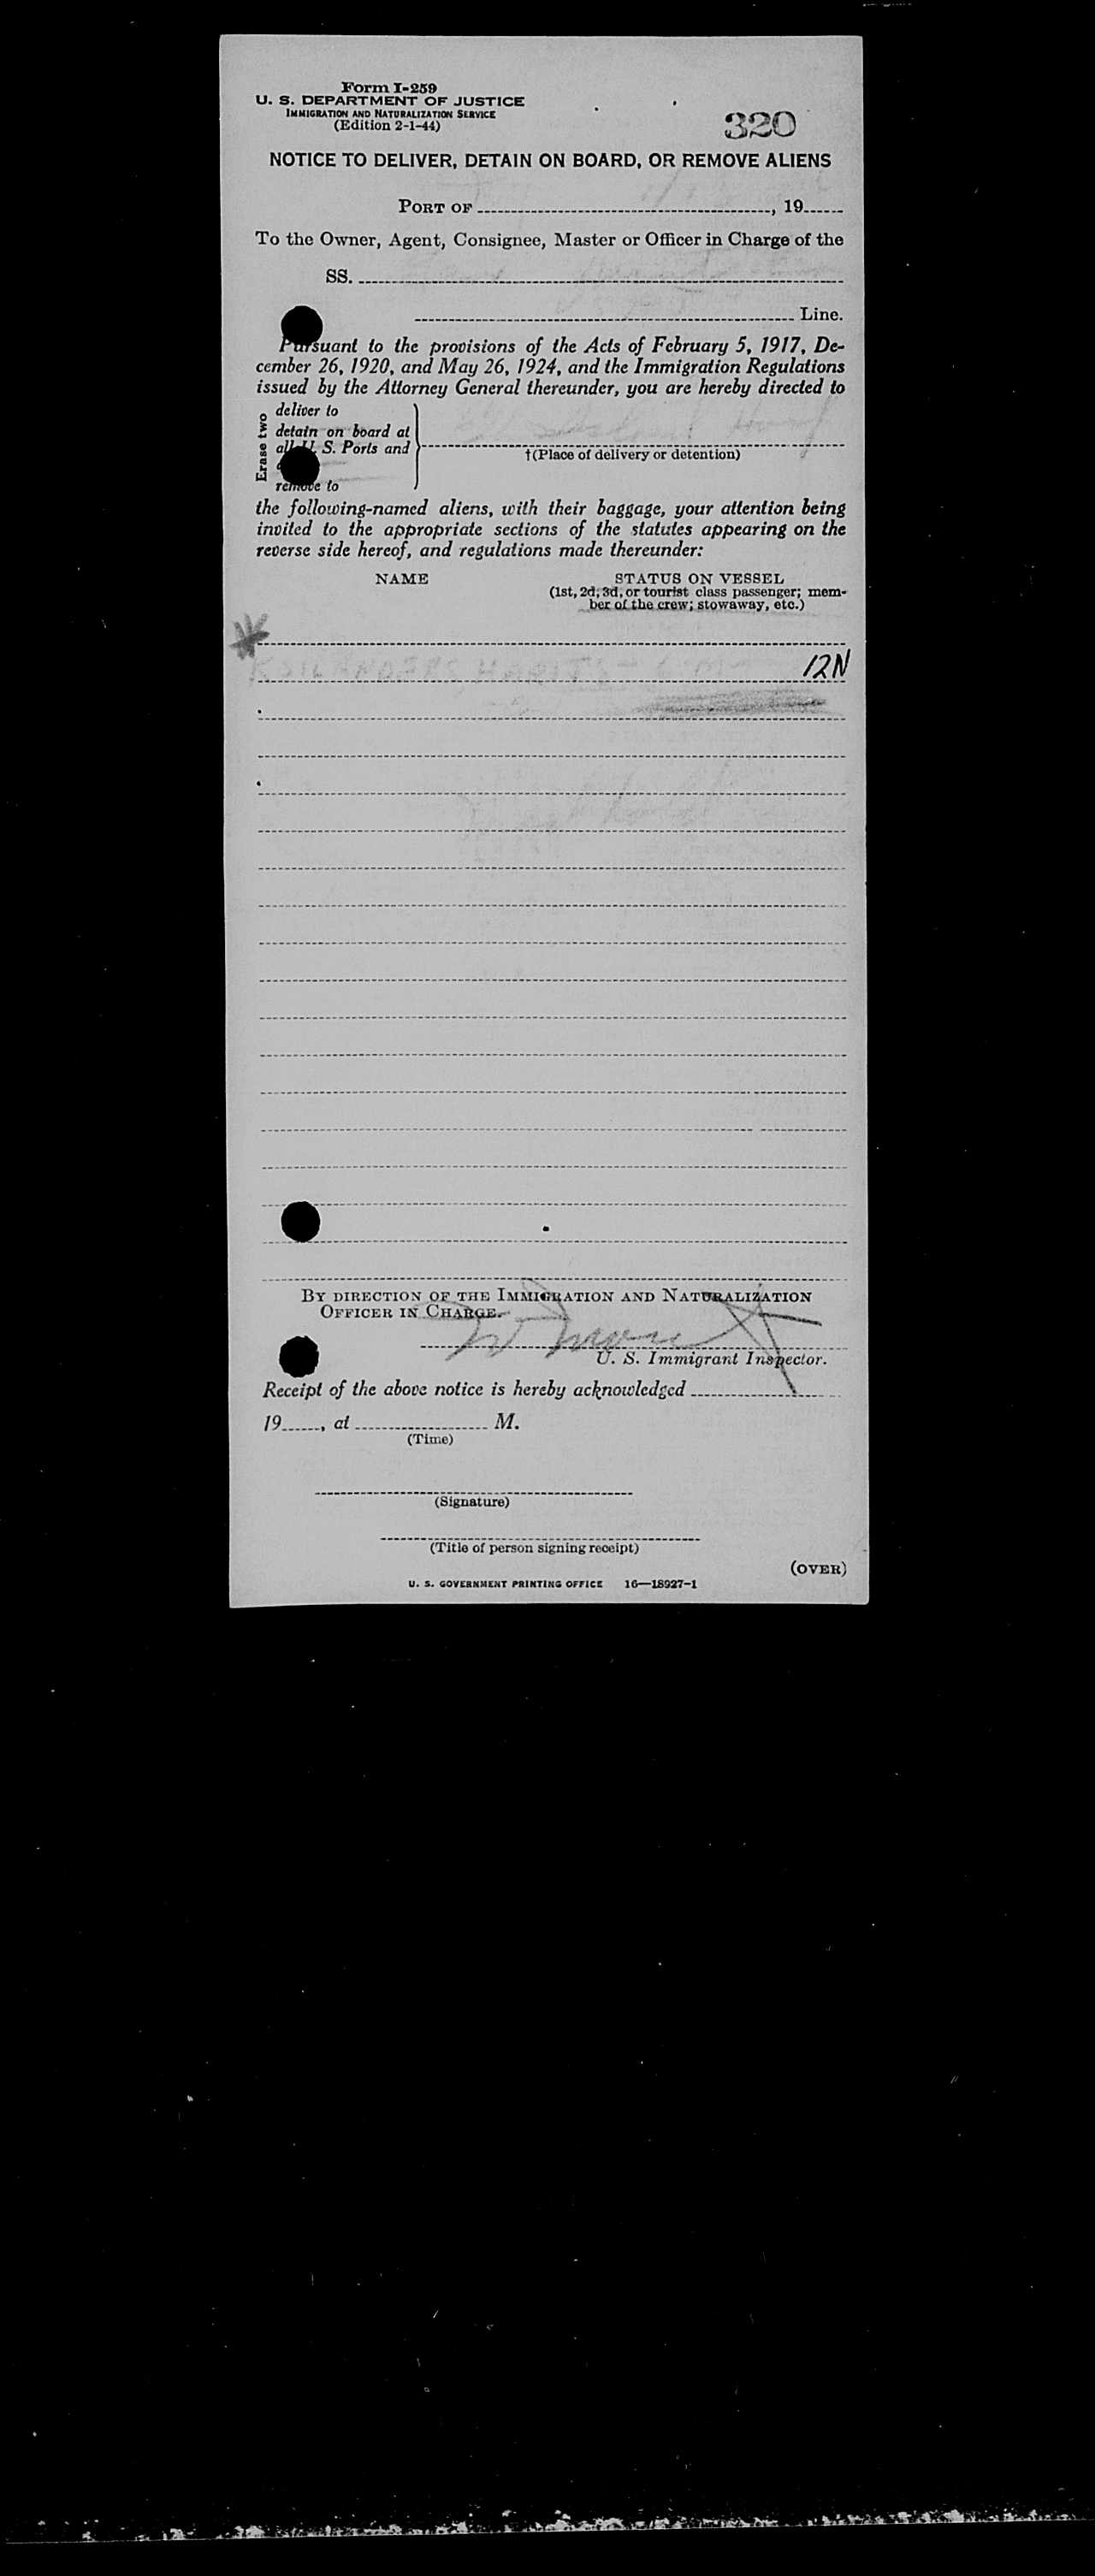 Form I-259
U. S. DEPARTMENT OF JUSTICE
IMMIGRATION AND NATURALIZATION SERVICE
(Edition 2-1-44)
320
NOTICE TO DELIVER, DETAIN ON BOARD, OR REMOVE ALIENS
PORT OF , 19
To the Owner, Agent, Consignee, Master or Officer in Charge of the
SS.
Line.
Pursuant to the provisions of the Acts of February 5, 1917, De-
cember 26, 1920, and May 26, 1924, and the Immigration Regulations
issued by the Attorney General thereunder, you are hereby directed to
Erase two
deliver to
detain on board at
all U. S. Ports and
†(Place of delivery or detention)
remove to
the following-named aliens, with their baggage, your attention being
invited to the appropriate sections of the statutes appearing on the
reverse side hereof, and regulations made thereunder:
NAME STATUS ON VESSEL
(1st, 2d, 3d, or tourist class passenger; mem-
ber of the crew; stowaway, etc.)
12N
BY DIRECTION OF THE IMMIGRATION AND NATURALIZATION
OFFICER IN CHARGE.
U. S. Immigrant Inspector.
Receipt of the above notice is hereby acknowledged
19 , at M.
(Time)
(Signature)
(Title of person signing receipt)
(OVER)
U. S. GOVERNMENT PRINTING OFFICE 16—18927-1